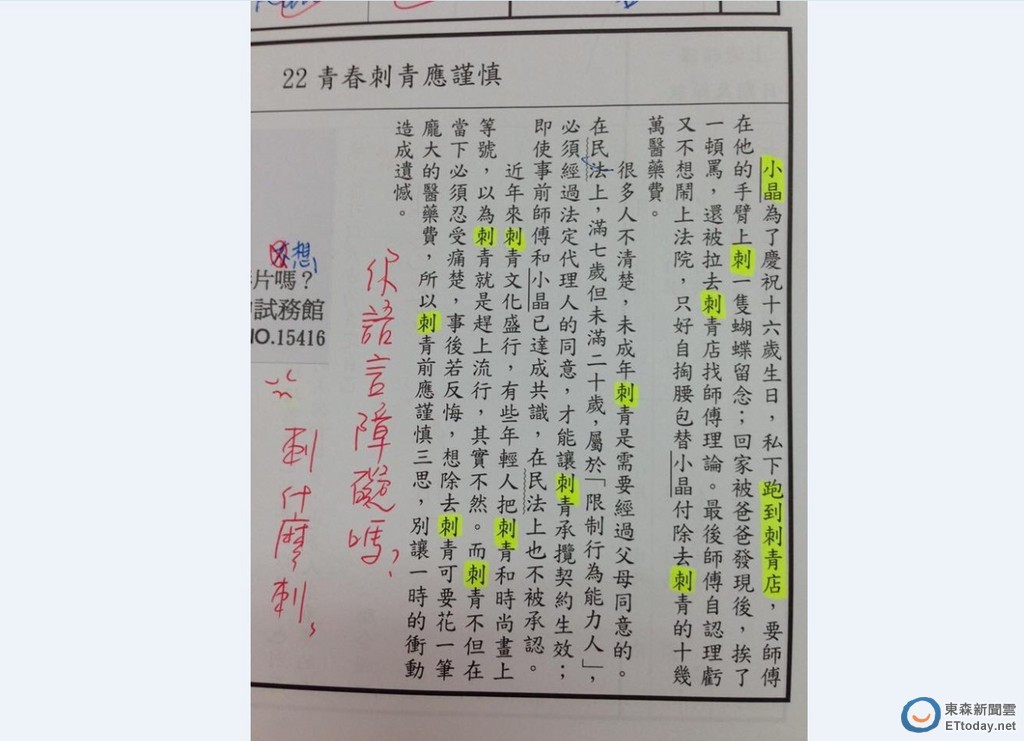 22 青春刺青應謹慎
小晶為了慶祝十六歲生日，私下跑到刺青店，要師傅
在他的手臂上刺一隻蝴蝶留念；回家被爸爸發現後，挨了
一頓罵，還被拉去刺青店找師傅理論。最後師傅自認理虧
又不想鬧上法院，只好自掏腰包替小晶付除去刺青的十幾
萬醫藥費。
很多人不清楚，未成年刺青是需要經過父母同意的。
在民法上，滿七歲但未滿二十歲，屬於「限制行為能力人」，
必須經過法定代理人的同意，才能讓刺青承攬契約生效；
即使事前師傅和小晶已達成共識，在民法上也不被承認。
近年來刺青文化盛行，有些年輕人把刺青和時尚畫上
等號，以為刺青就是趕上流行，其實不然。而刺青不但在
當下必須忍受痛楚，事後若反悔，想除去刺青可要花一筆
龐大的醫藥費，所以刺青前應謹慎三思，別讓一時的衝動
造成遺憾。
你語言障礙嗎？
刺什麼刺，
想
片嗎？
試務館
NO.15416
東森新聞雲
ETtoday.net